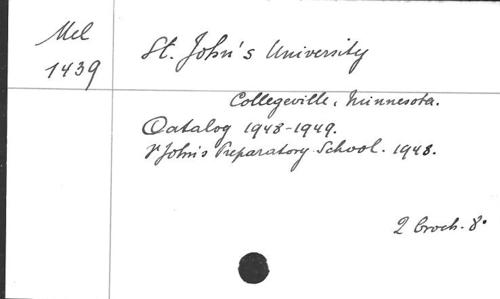 Mel
1439
St. John's University
Collegeville, Minnesota.
Catalog 1948-1949.
St John's Preparatory School. 1948.
2 broch. 8°